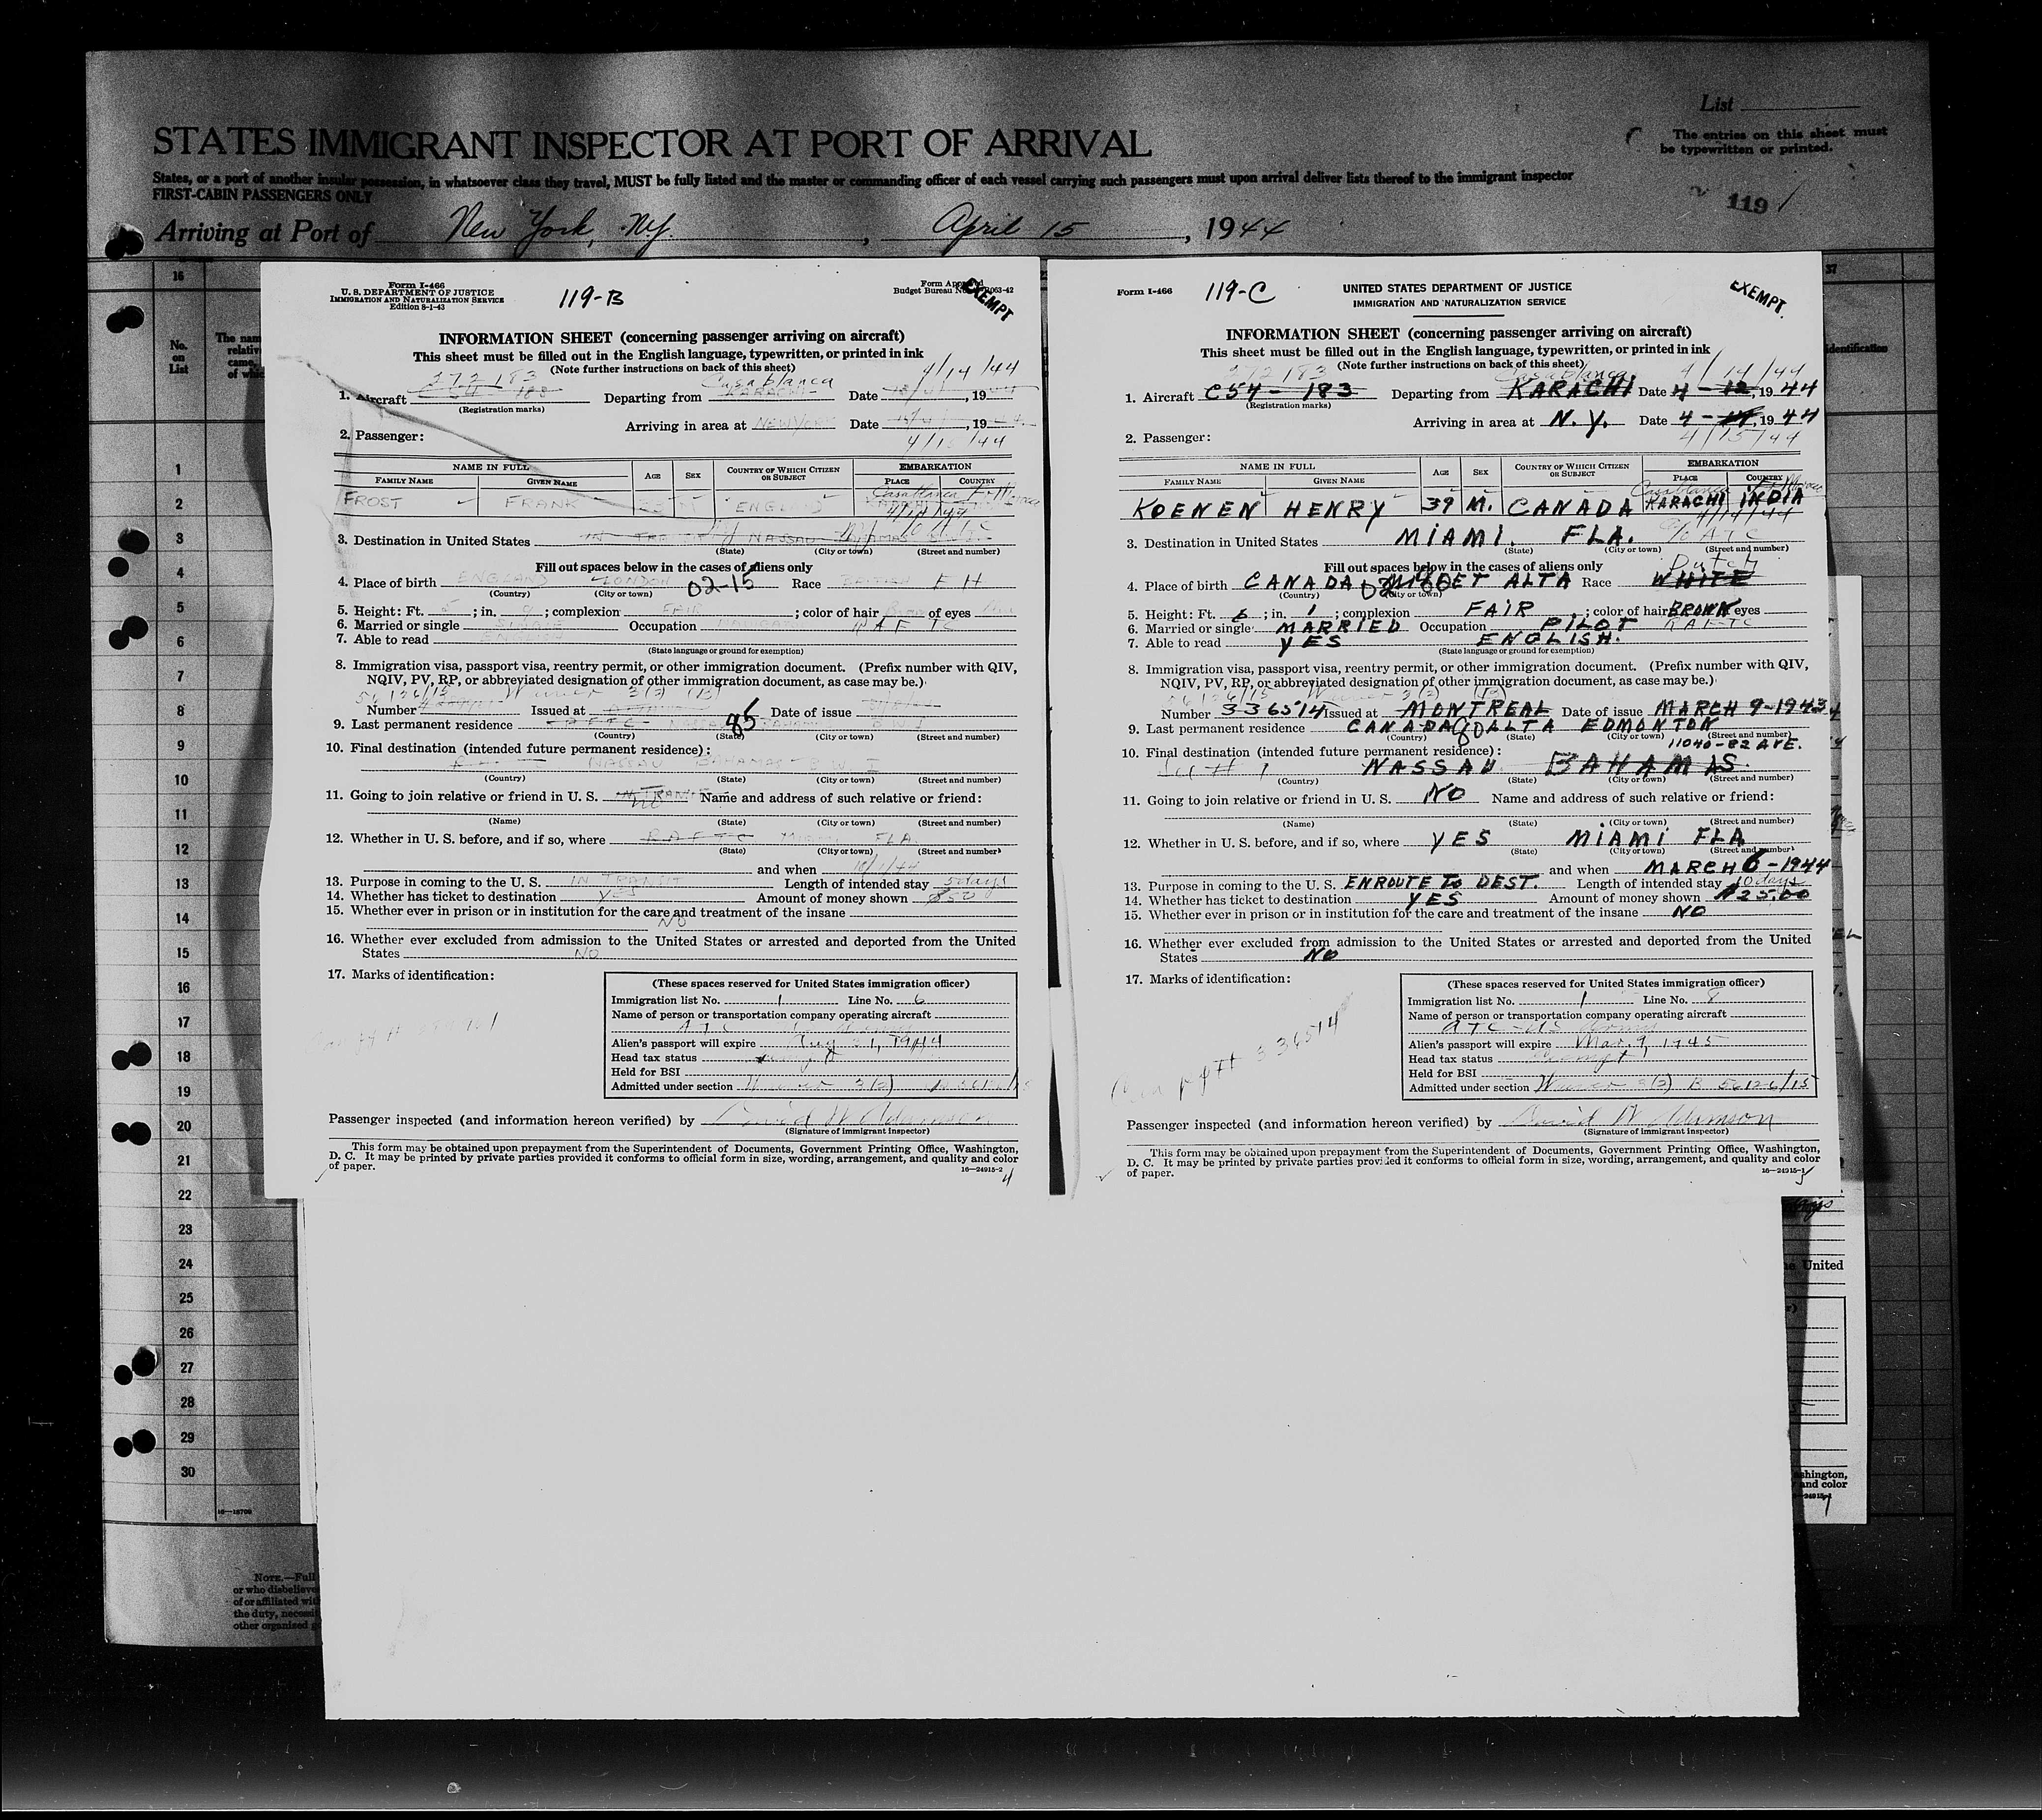 List
STATES IMMIGRANT INSPECTOR AT PORT OF ARRIVAL
The entries on this sheet must
be typewritten or printed.
States, or a port of another insular possession, in whatsoever class they travel, MUST be fully listed and the master or commanding officer of each vessel carrying such passengers must upon arrival deliver lists thereof to the immigrant inspector
FIRST-CABIN PASSENGERS ONLY
119
Arriving at Port of New York, N.Y., April 15, 1944
16
37
No.
on
List
identification
1
2
3
4
5
6
7
8
9
10
11
12
13
14
15
16
17
18
19
20
21
22
23
24
25
26
27
28
29
30
16—18709
NOTE.—Full
or who disbelieve
of or affiliated wit
the duty, necessi
other organized g
Form I-466
U. S. DEPARTMENT OF JUSTICE
IMMIGRATION AND NATURALIZATION SERVICE
Edition 8-1-43
119-B
Form Approved
Budget Bureau No. R063-42
EXEMPT
INFORMATION SHEET (concerning passenger arriving on aircraft)
This sheet must be filled out in the English language, typewritten, or printed in ink
(Note further instructions on back of this sheet)
272183 Casablanca 4/14/44
1. Aircraft C 54 - 183 Departing from KARACHI Date , 19
(Registration marks)
Arriving in area at NEW YORK Date , 19 44
4/15/44
2. Passenger:
NAME IN FULL AGE SEX COUNTRY OF WHICH CITIZEN OR SUBJECT EMBARKATION
FAMILY NAME GIVEN NAME PLACE COUNTRY
Casablanca
FROST FRANK ENGLAND
4/14/44
3. Destination in United States IN TRANSIT NASSAU BAHAMAS
(State) (City or town) (Street and number)
Fill out spaces below in the cases of aliens only
4. Place of birth ENGLAND LONDON 02-15 Race BRITISH E H
(Country) (City or town)
5. Height: Ft. 5; in. ; complexion FAIR; color of hair Brown of eyes
6. Married or single SINGLE Occupation R A F T C
7. Able to read ENGLISH
(State language or ground for exemption)
8. Immigration visa, passport visa, reentry permit, or other immigration document. (Prefix number with QIV,
NQIV, PV, RP, or abbreviated designation of other immigration document, as case may be.)
56126/15 Waiver 3(2) (B)
Number Issued at Date of issue
9. Last permanent residence R A F T C NASSAU 85 BAHAMAS B W I
(Country) (State) (City or town) (Street and number)
10. Final destination (intended future permanent residence):
NASSAU BAHAMAS B. W. I
(Country) (State) (City or town) (Street and number)
11. Going to join relative or friend in U. S. IN TRANSIT no Name and address of such relative or friend:
(Name) (State) (City or town) (Street and number)
12. Whether in U. S. before, and if so, where R A F T C MIAMI FLA
(State) (City or town) (Street and number)
and when
13. Purpose in coming to the U. S. IN TRANSIT Length of intended stay 5 days
14. Whether has ticket to destination YES Amount of money shown $50
15. Whether ever in prison or in institution for the care and treatment of the insane
NO
16. Whether ever excluded from admission to the United States or arrested and deported from the United
States NO
17. Marks of identification:
(These spaces reserved for United States immigration officer)
Immigration list No. 1 Line No. 6
Name of person or transportation company operating aircraft
ATC US Army
Alien's passport will expire Aug 31, 1944
Head tax status exempt
Held for BSI
Admitted under section Waiver 3(2) 56126/15
Passenger inspected (and information hereon verified) by David W Adamson
(Signature of immigrant inspector)
This form may be obtained upon prepayment from the Superintendent of Documents, Government Printing Office, Washington,
D. C. It may be printed by private parties provided it conforms to official form in size, wording, arrangement, and quality and color
of paper.
16—24915-2
4
Form I-466
119-C
UNITED STATES DEPARTMENT OF JUSTICE
IMMIGRATION AND NATURALIZATION SERVICE
EXEMPT
INFORMATION SHEET (concerning passenger arriving on aircraft)
This sheet must be filled out in the English language, typewritten, or printed in ink
(Note further instructions on back of this sheet)
272183 Casablanca 4/14/44
1. Aircraft C54 - 183 Departing from KARACHI Date 4 - 12, 19 44
(Registration marks)
Arriving in area at N.Y. Date 4 - , 19 44
4/15/44
2. Passenger:
NAME IN FULL AGE SEX COUNTRY OF WHICH CITIZEN OR SUBJECT EMBARKATION
FAMILY NAME GIVEN NAME PLACE COUNTRY
Casablanca Fr. Morocco
KOENEN HENRY 39 M. CANADA KARACHI INDIA
4/14/44
3. Destination in United States MIAMI. FLA. c/o ATC
(State) (City or town) (Street and number)
Fill out spaces below in the cases of aliens only
Dutch
4. Place of birth CANADA ALTA Race WHITE
(Country) (City or town)
5. Height: Ft. 6; in. 1; complexion FAIR; color of hair BROWN eyes
6. Married or single MARRIED Occupation PILOT RAFTC
7. Able to read YES ENGLISH.
(State language or ground for exemption)
8. Immigration visa, passport visa, reentry permit, or other immigration document. (Prefix number with QIV,
NQIV, PV, RP, or abbreviated designation of other immigration document, as case may be.)
56126/15 Waiver 3(2) (B)
Number 336514 Issued at MONTREAL Date of issue MARCH 9-1943
9. Last permanent residence CANADA 80 ALTA EDMONTON
(Country) (State) (City or town) (Street and number)
11040-82 AVE.
10. Final destination (intended future permanent residence):
NASSAU BAHAMAS.
(Country) (State) (City or town) (Street and number)
11. Going to join relative or friend in U. S. NO Name and address of such relative or friend:
(Name) (State) (City or town) (Street and number)
12. Whether in U. S. before, and if so, where YES MIAMI FLA
(State) (City or town) (Street and number)
and when MARCH 6-1944
13. Purpose in coming to the U. S. ENROUTE TO DEST. Length of intended stay 10 days
14. Whether has ticket to destination YES Amount of money shown $25.00
15. Whether ever in prison or in institution for the care and treatment of the insane NO
16. Whether ever excluded from admission to the United States or arrested and deported from the United
States NO
17. Marks of identification:
Can ppt # 336514
(These spaces reserved for United States immigration officer)
Immigration list No. 1 Line No. 8
Name of person or transportation company operating aircraft
ATC - US Army
Alien's passport will expire Mar. 9, 1945
Head tax status Exempt
Held for BSI
Admitted under section Waiver 3(2) B 56126/15
Passenger inspected (and information hereon verified) by David W Adamson
(Signature of immigrant inspector)
This form may be obtained upon prepayment from the Superintendent of Documents, Government Printing Office, Washington,
D. C. It may be printed by private parties provided it conforms to official form in size, wording, arrangement, and quality and color
of paper.
16—24915-1
5
United
shington,
and color